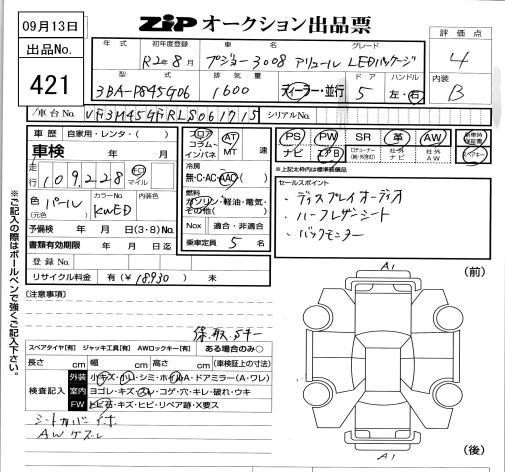 09月13日
出品No.
421
ZiP オークション出品票
評価点
4
内装
B
年式 初年度登録 車名 グレード
R2年8月 プジョー3008 アリュール LEDパッケージ
型式 排気量 ドア ハンドル
3BA-P845G06 1600 ディーラー・並行 5 左・右
車台No. VF3M45GFRLS061715 シリアルNo.
車歴 自家用・レンタ・( )
車検 年 月
走行 109,228 km マイル
色 パール (元色)
カラーNo. KWED
内装色
予備検 年 月 日(3・8)No.
書類有効期限 年 月 日迄
登録No.
リサイクル料金 有(¥18930) 未
フロア コラム・インパネ
AT MT 速
冷房
無・C・AC・AAC
燃料
ガソリン・軽油・電気・その他( )
Nox 適合・非適合
乗車定員 5 名
PS PW SR 革 AW
ナビ エアB
社外ナビ 社外AW
新車時保証書
スペアキー
※上記太枠内は標準装備品
セールスポイント
・ディスプレイオーディオ
・ハーフレザーシート
・バックモニター
※ご記入の際はボールペンで強くご記入下さい。
(注意事項)
保、取、Sキー
スペアタイヤ[有] ジャッキ工具[有] AWロックキー[有] ある場合のみ○
長さ cm 幅 cm 高さ cm (車検証上の寸法)
検査記入
外装 小キズ・小凹・シミ・ホイルA・ドアミラー(A・ワレ)
室内 ヨゴレ・キズ・スレ・コゲ・穴・キレ・破れ・ウキ
FW トビ石・キズ・ヒビ・リペア跡・X要ス
シートカバー
AWケズレ
A1
(前)
A1
(後)